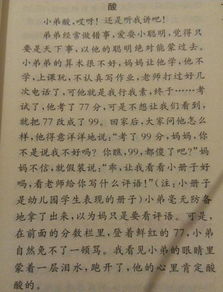 酸
小弟酸，哎呀！还是听我讲吧！
弟弟经常做错事，爱耍小聪明，觉得只
要是天下事，以他的聪明绝对能蒙过去。
小弟弟的算术很不好，妈妈让他学，他不
学，上课玩，不认真写作业，老师打过好几
次电话了，可他就是我行我素，终于……考
试了，他考了77分，可是不想让我们看到，
就把77改成了99。回家后，大家问他怎么
样，他得意洋洋地说：“考了99分，妈妈，你
不是说我不好吗？你瞧，99，都傻了吧？”妈
妈不信，就假装说：“乖，让我看看小册子好
吗，看老师给你写什么评语！”（注：小册子
是幼儿园学生表现的册子）小弟弟毫无防备
地拿了出来，以为妈只是要看评语。可是，
在前面的分数栏里，登着鲜红的77，小弟
自然免不了一顿骂。我看见小弟的眼睛里
蒙着一层泪水，跑开了，他的心里肯定酸
酸的。